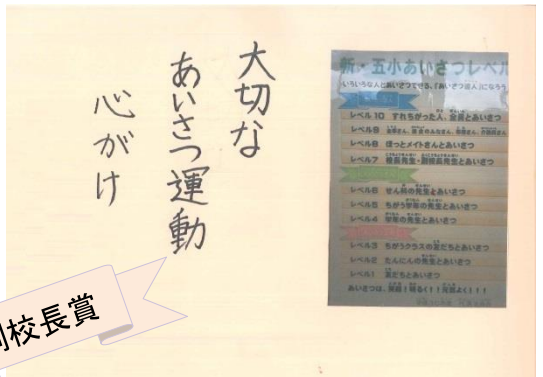 大切な
あいさつ運動
心がけ
新・五小あいさつレベル
いろいろな人とあいさつできる、「あいさつ達人」になろう
レベル10 すれちがった人、全員とあいさつ
レベル9
レベル8 ほっとメイトさんとあいさつ
レベル7 校長先生・副校長先生とあいさつ
レベル6 せん科の先生とあいさつ
レベル5 ちがう学年の先生とあいさつ
レベル4 学年の先生とあいさつ
レベル3 ちがうクラスの友だちとあいさつ
レベル2 たんにんの先生とあいさつ
レベル1 友だちとあいさつ
あいさつは、笑顔！明るく！！元気よく！！！
校長賞